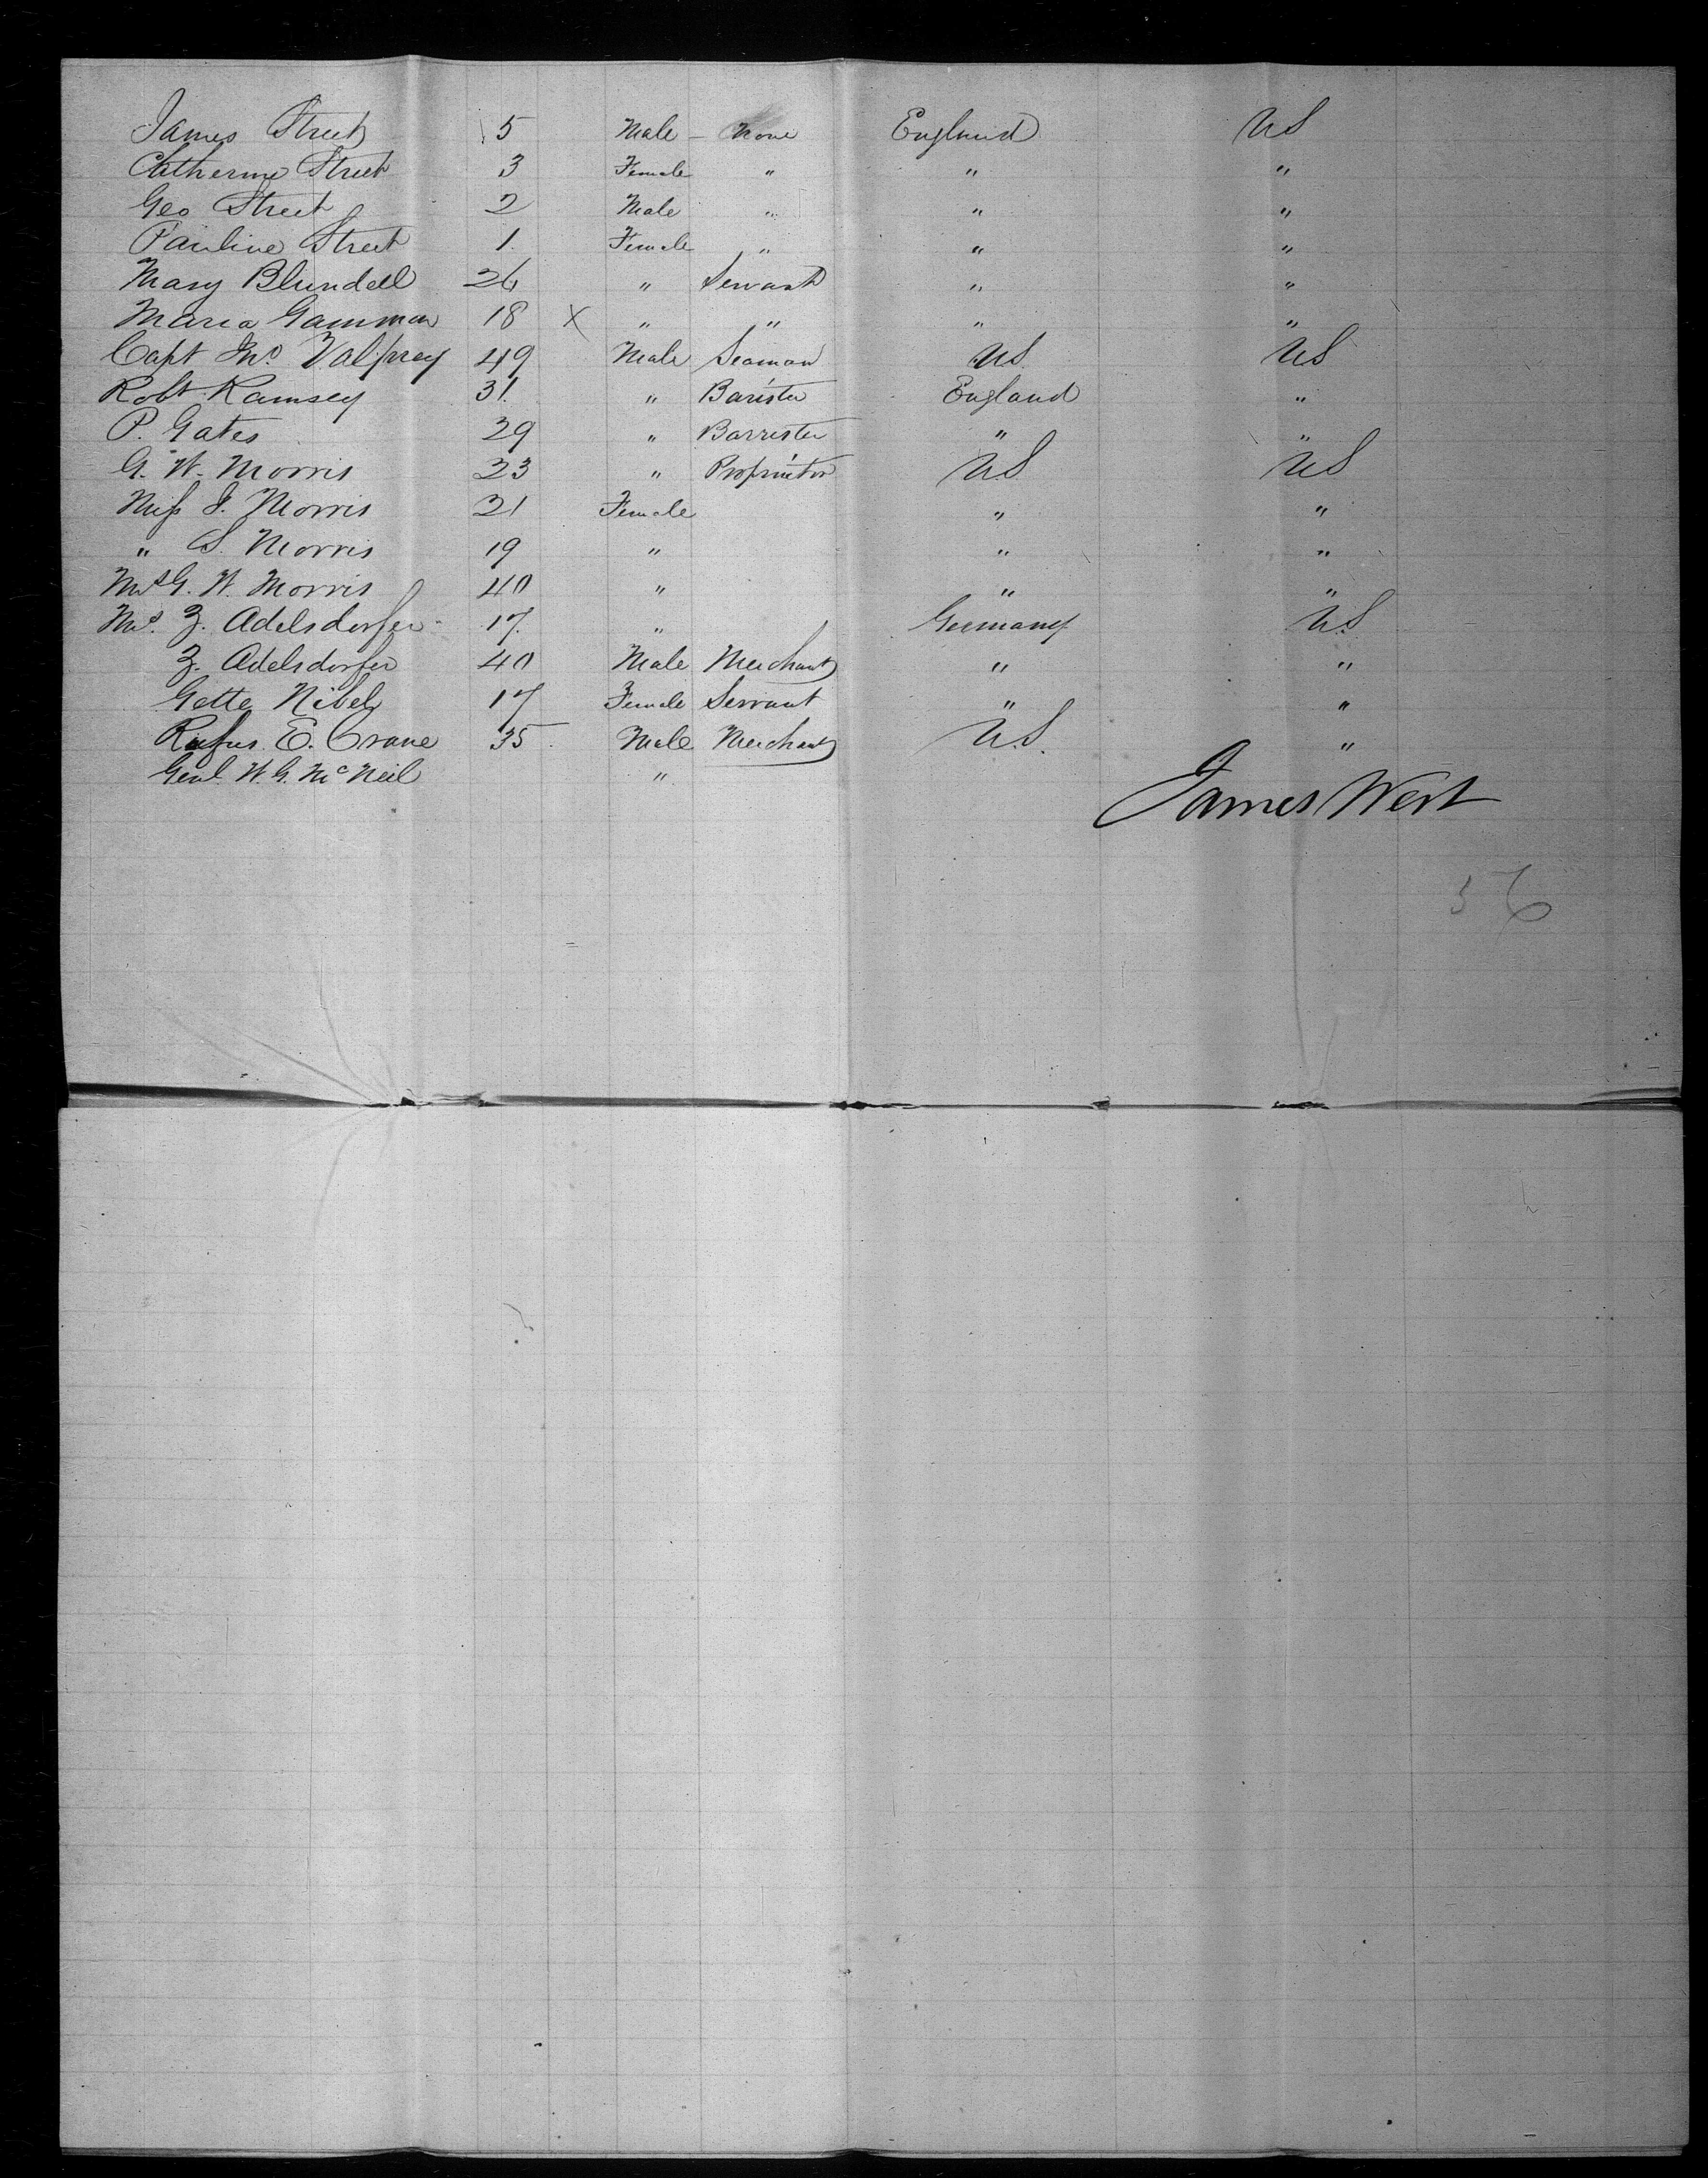 James Street 5 Male – None England US
Catherine Street 3 Female " " "
Geo Street 2 Male " " "
Pauline Street 1. Female " " "
Mary Blundell 26 " Servant " "
Maria Gammon 18 X " " " "
Capt Jno. Valprey 49 Male Seaman US. US
Robt Ramsey 31. " Barister England "
P. Gates 29 " Barrester " "
G. W. Morris 23 " Proprietor US US
Miss J. Morris 21 Female " "
" S. Morris 19 " " "
Mrs G. W. Morris 40 " " "
Mrs. Z. Adelsdorfer 17. " Germany U.S.
Z. Adelsdorfer 40 Male Merchant " "
Gette Nibel 17 Female Servant " "
Rufus E. Crane 35 Male Merchant U.S. "
Genl. W. G. McNeil "
James West
56